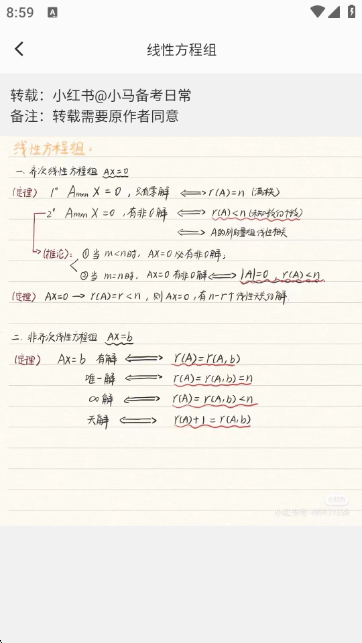 8:59
线性方程组
转载：小红书@小马备考日常
备注：转载需要原作者同意
线性方程组：
一. 齐次线性方程组 AX=0
(定理) 1° Aₘₓₙ X = 0，只有零解 ⟺ r(A)=n (满秩)
2° Aₘₓₙ X = 0，有非0解 ⟺ r(A)<n
⟺ A的列向量组线性相关
(推论)：①当 m<n时，AX=0 必有非0解；
②当 m=n时，AX=0 有非0解 ⟺ |A|=0，r(A)<n
(定理) AX=0 → r(A)=r<n，则AX=0，有n-r个线性无关的解.
二. 非齐次线性方程组 AX=b
(定理) AX=b 有解 ⟺ r(A)=r(A,b)
唯一解 ⟺ r(A)=r(A,b)=n
∞解 ⟺ r(A)=r(A,b)<n
无解 ⟺ r(A)+1=r(A,b)